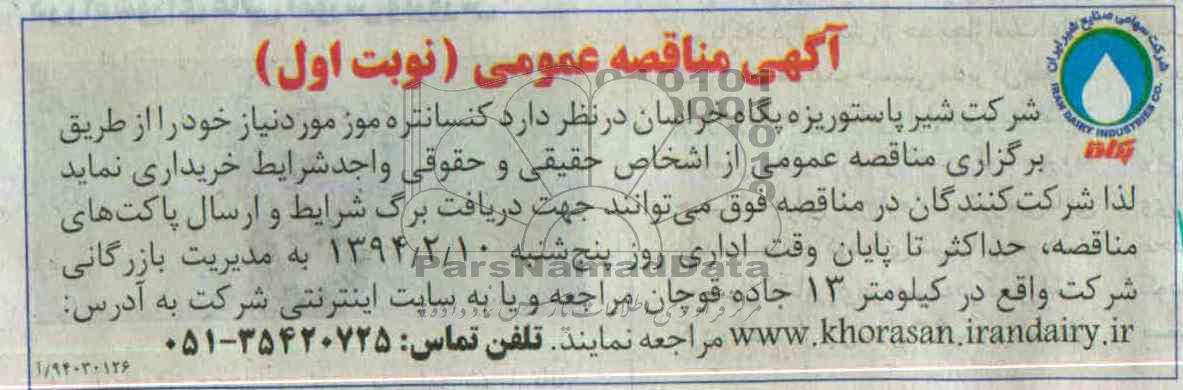 آگهی مناقصه عمومی (نوبت اول)
شرکت سهامی صنایع شیر ایران
IRAN DAIRY INDUSTRIES CO.
پگاه
شرکت شیر پاستوریزه پگاه خراسان درنظر دارد کنسانتره موز موردنیاز خود را از طریق
برگزاری مناقصه عمومی از اشخاص حقیقی و حقوقی واجدشرایط خریداری نماید
لذا شرکت‌کنندگان در مناقصه فوق می‌توانند جهت دریافت برگ شرایط و ارسال پاکت‌های
مناقصه، حداکثر تا پایان وقت اداری روز پنج‌شنبه ۱۳۹۴/۲/۱۰ به مدیریت بازرگانی
شرکت واقع در کیلومتر ۱۳ جاده قوچان مراجعه و یا به سایت اینترنتی شرکت به آدرس:
www.khorasan.irandairy.ir مراجعه نمایند. تلفن تماس: ۳۵۴۲۰۷۲۵-۰۵۱
۹۴۰۳۰۱۲۶/آ
ParsNamadData